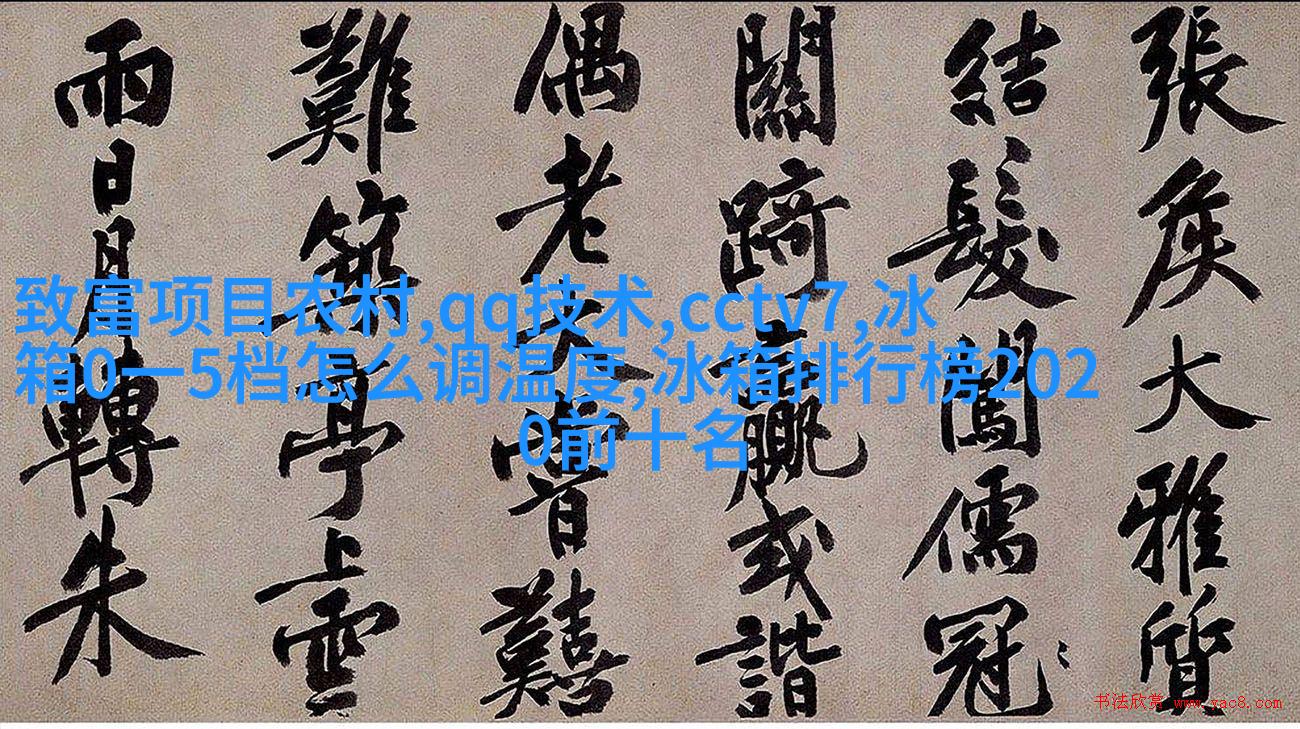 張矦大雅質
結髮闖儒冠
關踦贏或諧
偶老大嘗囏
難築亭上雲
雨日月轉朱
致富项目农村,qq技术,cctv7,冰
箱0一5档怎么调温度,冰箱排行榜202
0前十名
书法欣赏 www.yac8.com